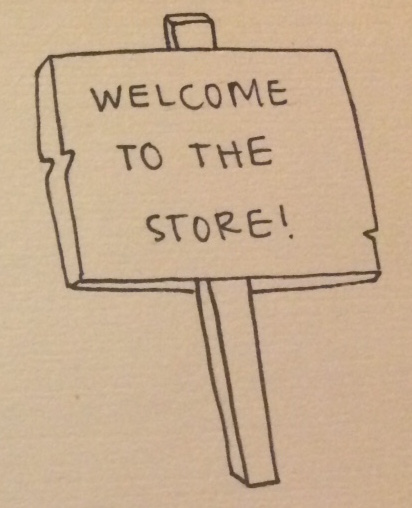 WELCOME
TO THE
STORE!